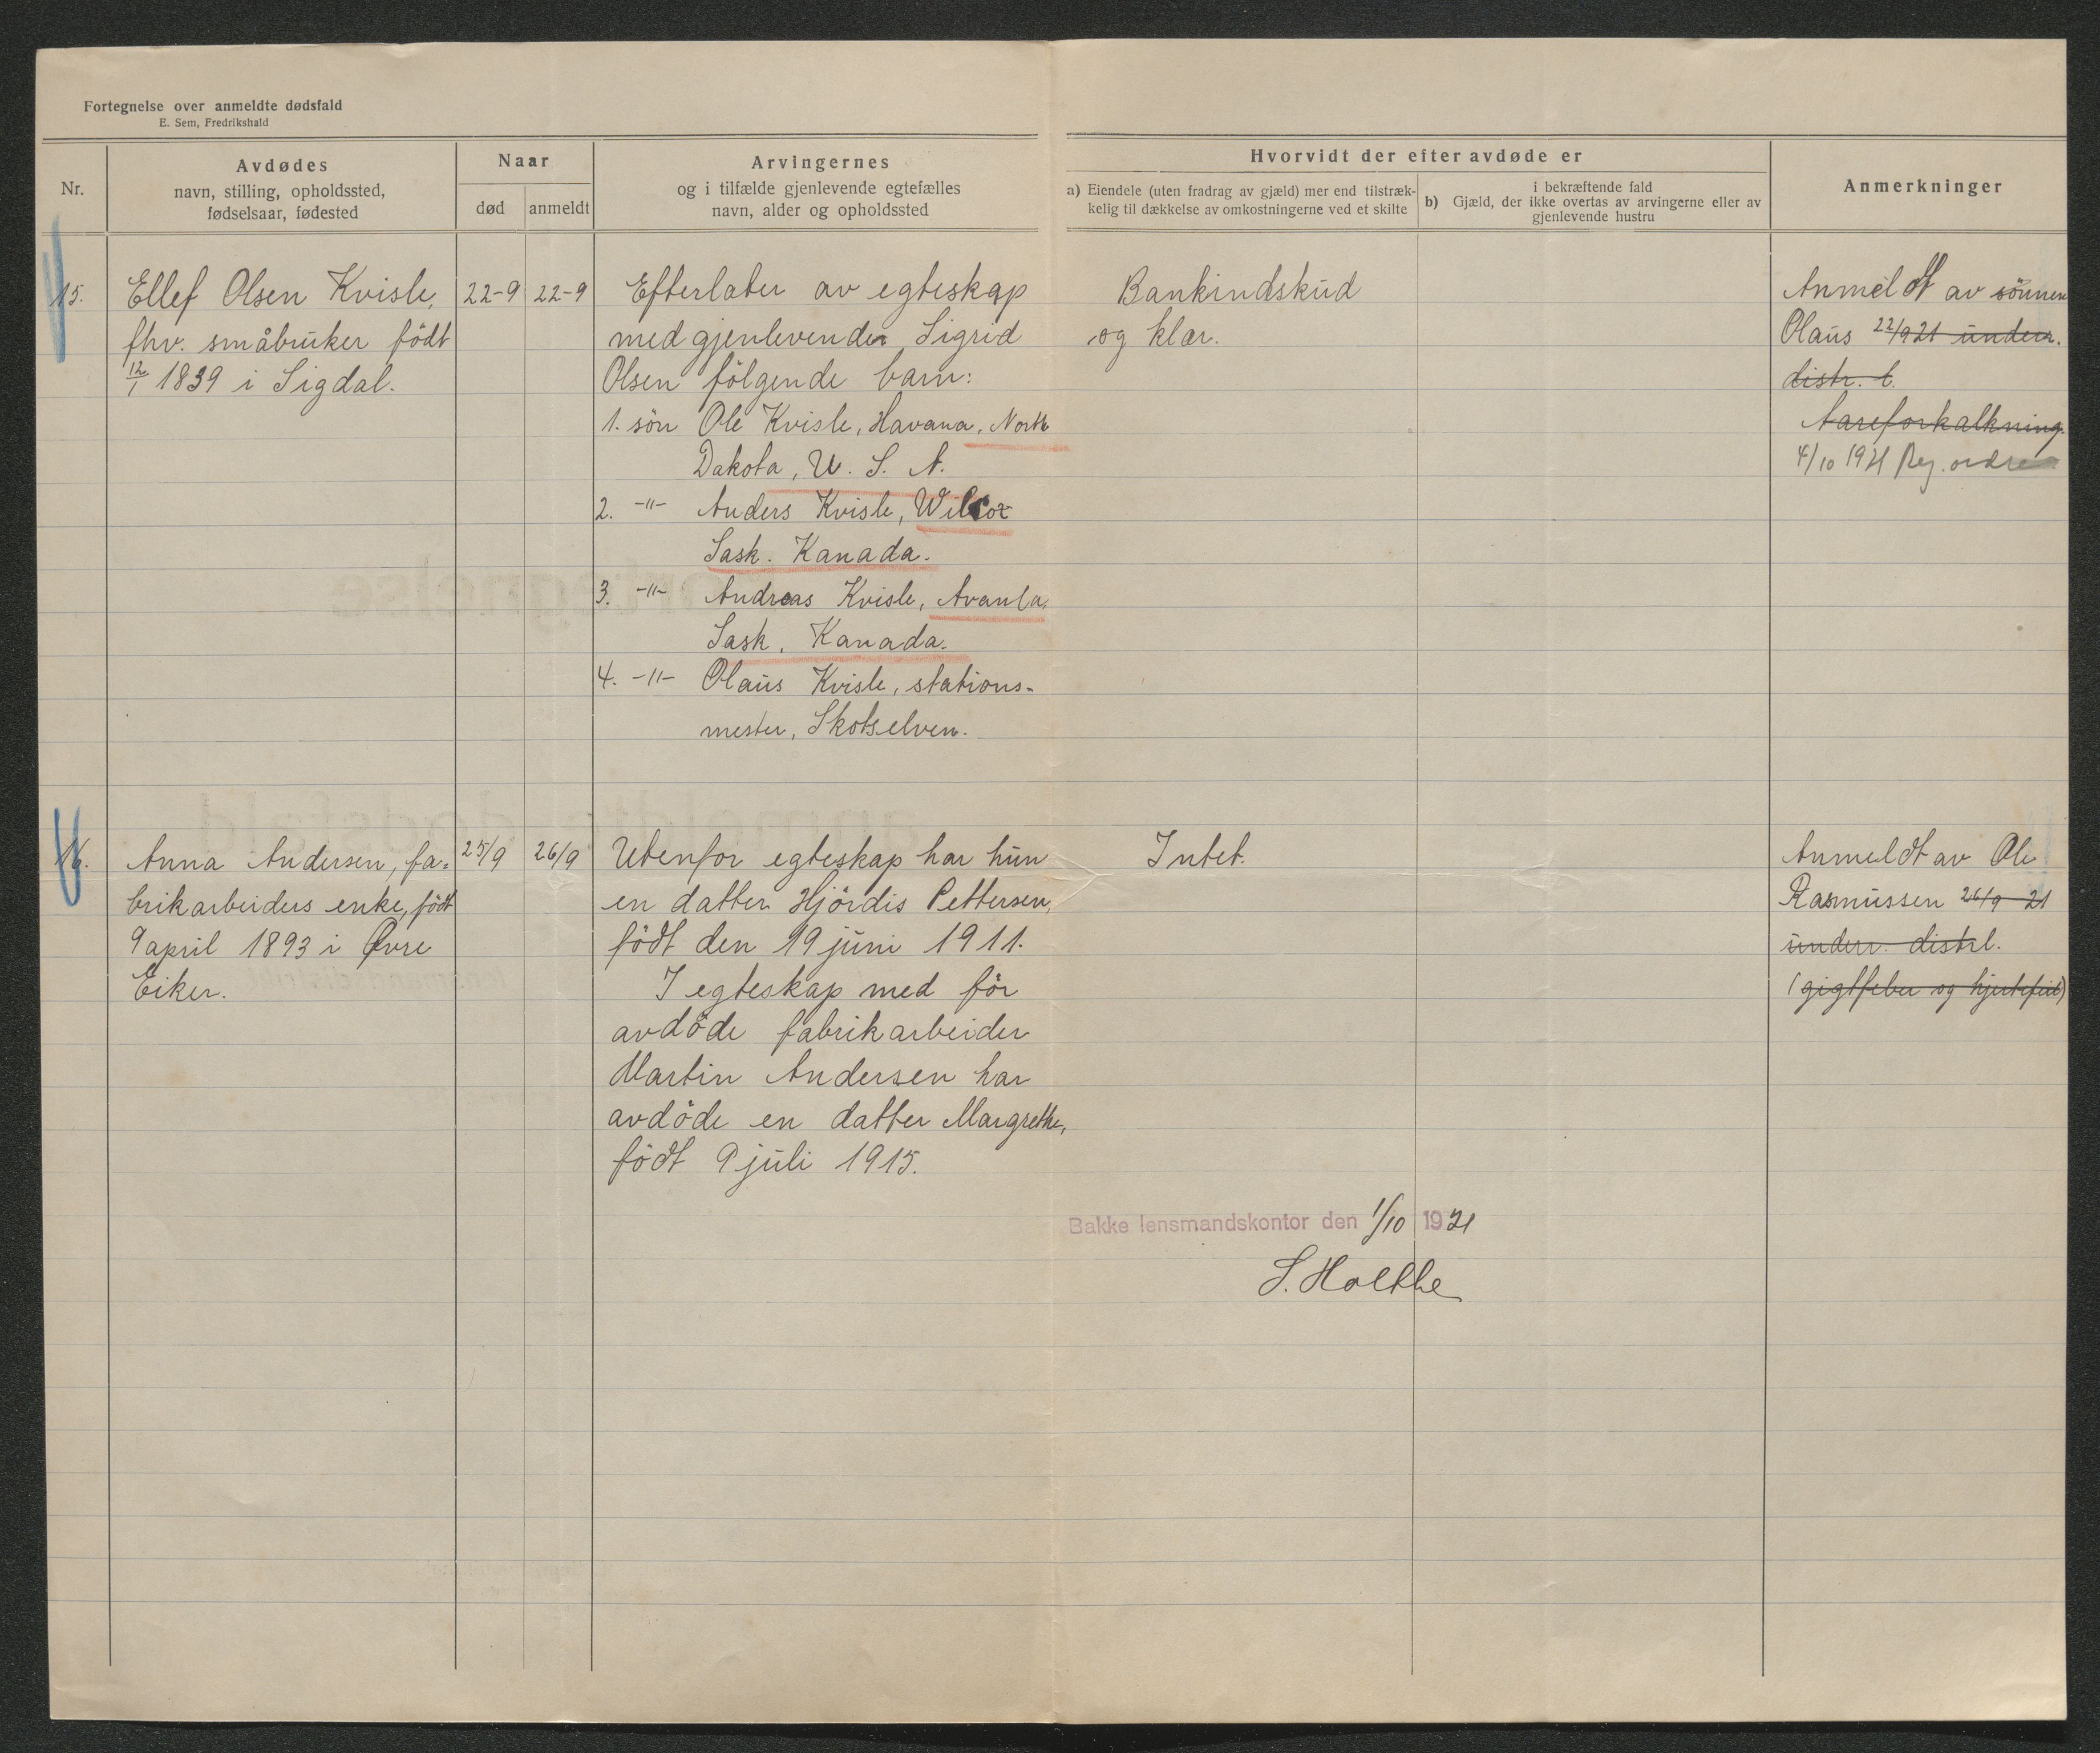 Fortegnelse over anmeldte dødsfald
E. Sem, Fredrikshald
Nr.
Avdødes
navn, stilling, opholdssted,
fødselsaar, fødested
Naar
død
anmeldt
Arvingernes
og i tilfælde gjenlevende egtefælles
navn, alder og opholdssted
Hvorvidt der efter avdøde er
a) Eiendele (uten fradrag av gjæld) mer end tilstræk-
kelig til dækkelse av omkostningerne ved et skifte
b) Gjæld, der ikke overtas av arvingerne eller av
i bekræftende fald
gjenlevende hustru
Anmerkninger
15.
Ellef Olsen Kvisle,
fhv. småbruker födt
12/1 1839 i Sigdal.
22-9
22-9
Efterlater av egteskap
med gjenlevende Sigrid
Olsen fölgende barn:
1. sön Ole Kvisle, Havana, North
Dakota, U. S. A.
2. -"- Anders Kvisle, Wilcox
Sask. Kanada.
3. -"- Andreas Kvisle, Avanla,
Sask. Kanada.
4. -"- Olaus Kvisle, stations-
mester, Skotselven.
Bankindskud
og klær.
Anmeldt av sönnen
Olaus 22/9 21 underr.
distr. l.
Aareforkalkning.
4/10 1921 Beg. ordre
16.
Anna Andersen, fa-
brikarbeiders enke, födt
9 april 1893 i Øvre
Eiker.
25/9
26/9
Utenfor egteskap har hun
en datter Hjördis Pettersen,
födt den 19 juni 1911.
I egteskap med för
avdöde fabrikarbeider
Martin Andersen har
avdöde en datter Margrethe,
födt 9 juli 1915.
Intet.
Anmeldt av Ole
Rasmussen 26/9 21
underr. distr.l.
(gigtfeber og hjertefeil)
Bakke lensmandskontor den 1/10 1921
S. Holthe